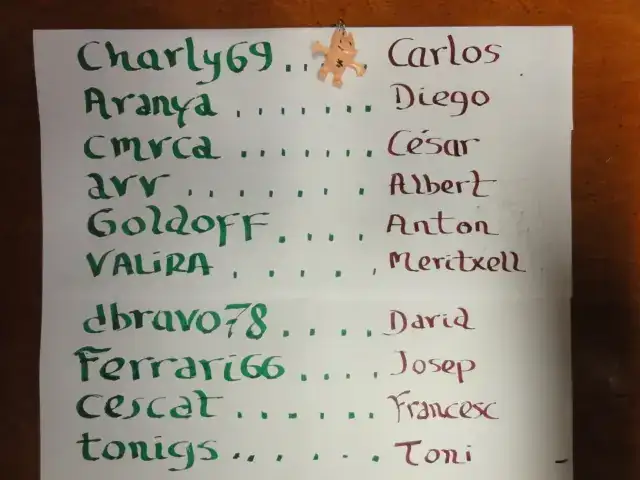 Charly69.. Carlos
Aranya ....... Diego
cmvca ....... César
avv ....... Albert
Goldoff .... Anton
VALiRA ..... Meritxell
dbravo78 .... David
Ferrari66 .... Josep
cescat ...... Francesc
tonigs ...... Toni